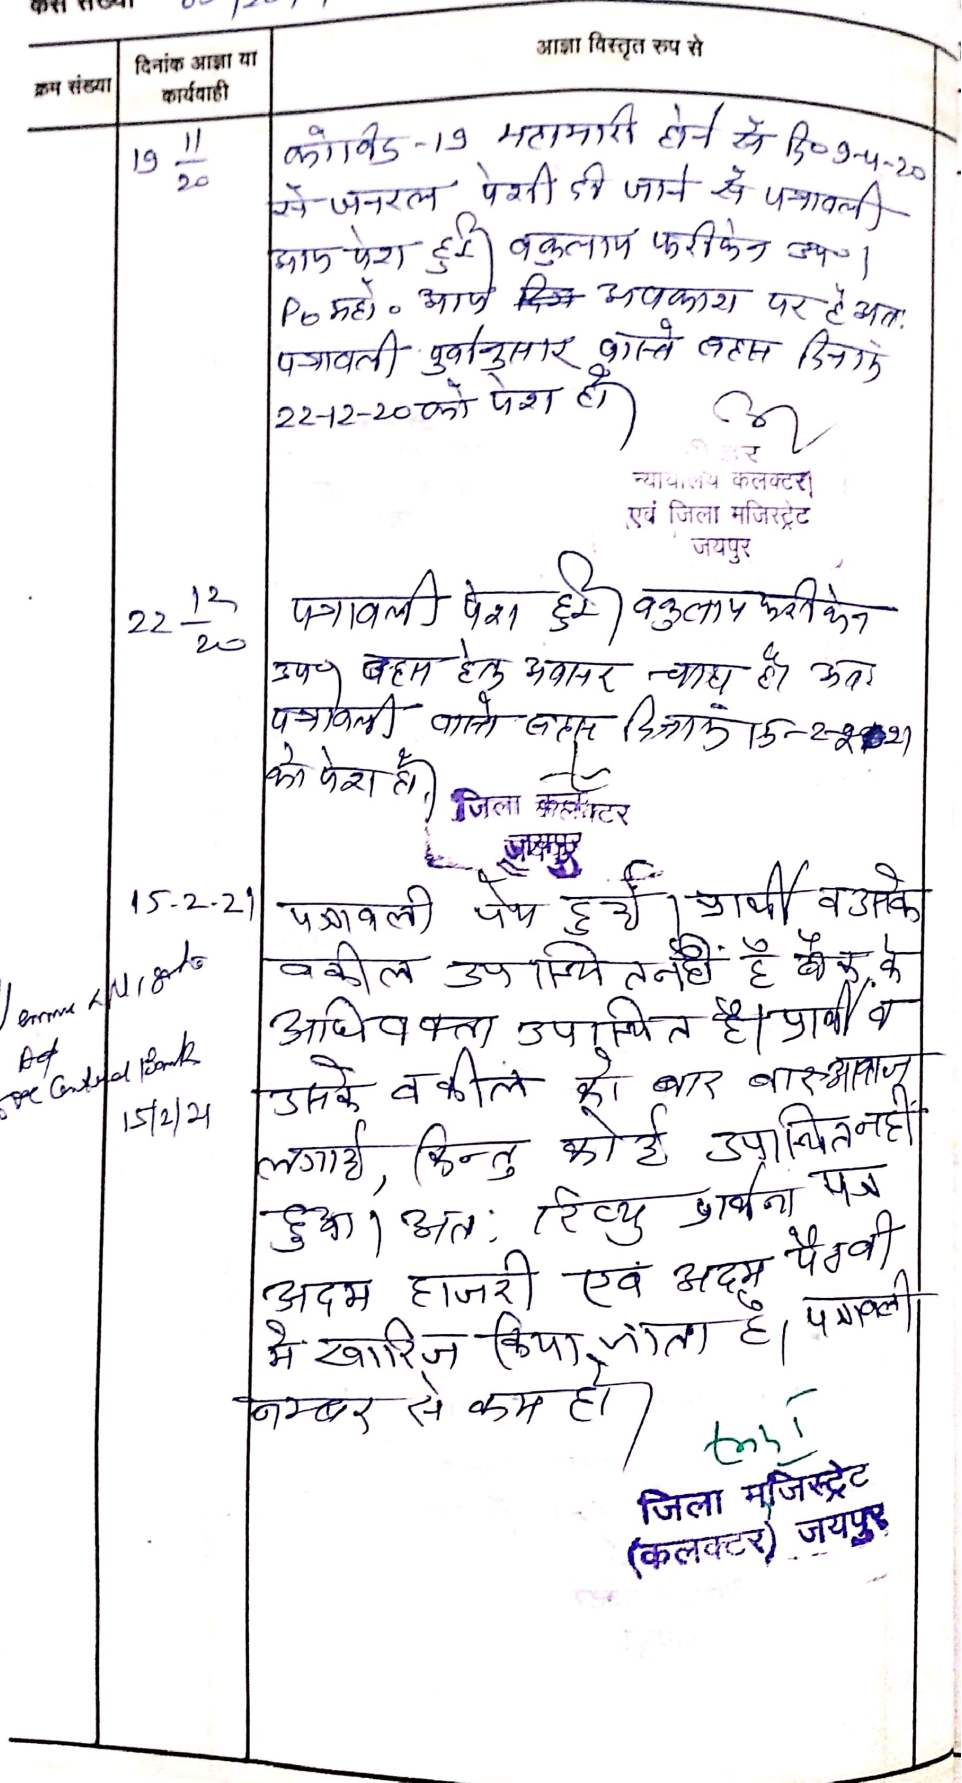 केस संख्या
क्रम संख्या
दिनांक आज्ञा या
कार्यवाही
आज्ञा विस्तृत रूप से
19 11/20
कोविड-19 महामारी होने से दि० 9-4-20
से जनरल पेशी दी जाने से पत्रावली
आज पेश हुई। वकुलाय फरीकेन उप०।
PO महो० आज अवकाश पर है अतः
पत्रावली पुर्वानुसार वास्ते बहस दिनांक
22-12-20 को पेश हो।
रीडर
न्यायालय कलक्टर
एवं जिला मजिस्ट्रेट
जयपुर
22 12/20
पत्रावली पेश हुई। वकुलाय फरीकेन
उप०। बहस हेतु अवसर चाहा है। अतः
पत्रावली वास्ते बहस दिनांक 15-2-2021
को पेश हो।
जिला कलेक्टर
जयपुर
15-2-21
पत्रावली पेश हुई। प्रार्थी व उसके
वकील उपस्थित नहीं है बैंक के
अधिवक्ता उपस्थित है। प्रार्थी व
उसके वकील को बार बार आवाज
लगाई, किन्तु कोई उपस्थित नहीं
हुआ। अतः रिव्यु प्रार्थना पत्र
अदम हाजरी एवं अदम पैरवी
में खारिज किया जाता है। पत्रावली
नम्बर से कम हो।
Adv
Central Bank
15/2/21
जिला मजिस्ट्रेट
(कलक्टर) जयपुर